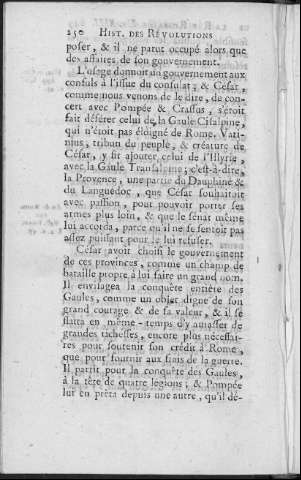 250 HIST. DES RÉVOLUTIONS
poser, & il ne parut occupé alors que
des affaires de son gouvernement.
L'usage donnoit un gouvernement aux
consuls à l'issue du consulat ; & César,
comme nous venons de le dire, de con-
cert avec Pompée & Crassus, s'étoit
fait déférer celui de la Gaule Cisalpine,
qui n'étoit pas éloigné de Rome. Vati-
nius, tribun du peuple, & créature de
César, y fit ajouter celui de l'Illyrie,
avec la Gaule Transalpine ; c'est-à-dire,
la Provence, une partie du Dauphiné &
du Languedoc, que César souhaitoit
avec passion, pour pouvoir porter ses
armes plus loin, & que le sénat même
lui accorda, parce qu'il ne se sentoit pas
assez puissant pour le lui refuser.
César avoit choisi le gouvernement
de ces provinces, comme un champ de
bataille propre à lui faire un grand nom.
Il envisagea la conquête entière des
Gaules, comme un objet digne de son
grand courage & de sa valeur, & il se
flatta en même-temps d'y amasser de
grandes richesses, encore plus nécessai-
res pour soutenir son crédit à Rome,
que pour fournir aux frais de la guerre.
Il partit pour la conquête des Gaules,
à la tête de quatre légions ; & Pompée
lui en prêta depuis une autre, qu'il dé-